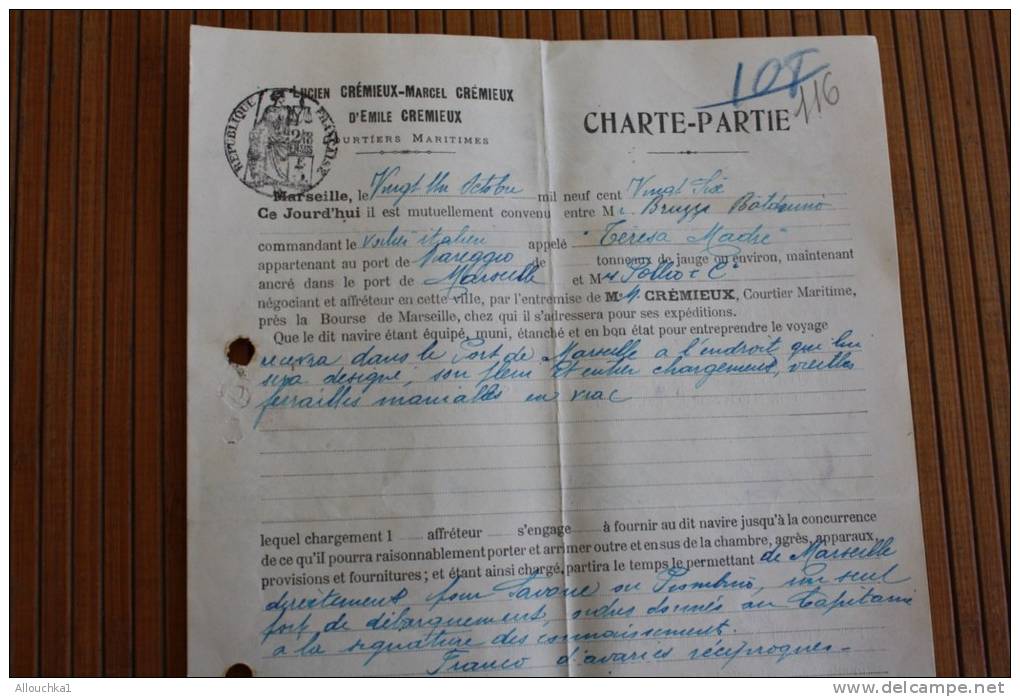 108
116
LUCIEN CRÉMIEUX-MARCEL CRÉMIEUX
D'EMILE CREMIEUX
COURTIERS MARITIMES
RÉPUBLIQUE FRANÇAISE
CHARTE-PARTIE
Marseille, le Vingt Un Octobre mil neuf cent Vingt Six
Ce Jourd'hui il est mutuellement convenu entre M. Bruzzo
commandant le italien appelé "Teresa Madre"
appartenant au port de Viareggio de tonneaux de jauge ou environ, maintenant
ancré dans le port de Marseille et M Pollio & Cie
négociant et affréteur en cette ville, par l'entremise de M. CRÉMIEUX, Courtier Maritime,
près la Bourse de Marseille, chez qui il s'adressera pour ses expéditions.
Que le dit navire étant équipé, muni, étanché et en bon état pour entreprendre le voyage
recevra dans le Port de Marseille a l'endroit qui lui
sera designé, son plein et entier chargement, vieilles
ferrailles maniables en vrac
lequel chargement l affréteur s'engage à fournir au dit navire jusqu'à la concurrence
de ce qu'il pourra raisonnablement porter et arrimer outre et en sus de la chambre, agrès, apparaux,
provisions et fournitures ; et étant ainsi chargé, partira le temps le permettant de Marseille
directement pour Savone ou Piombino, un seul
port de débarquement, ordres donnés au Capitaine
a la signature des connaissement.
Franco d'avaries réciproques.
Allouchka1
http://www.delcampe.net